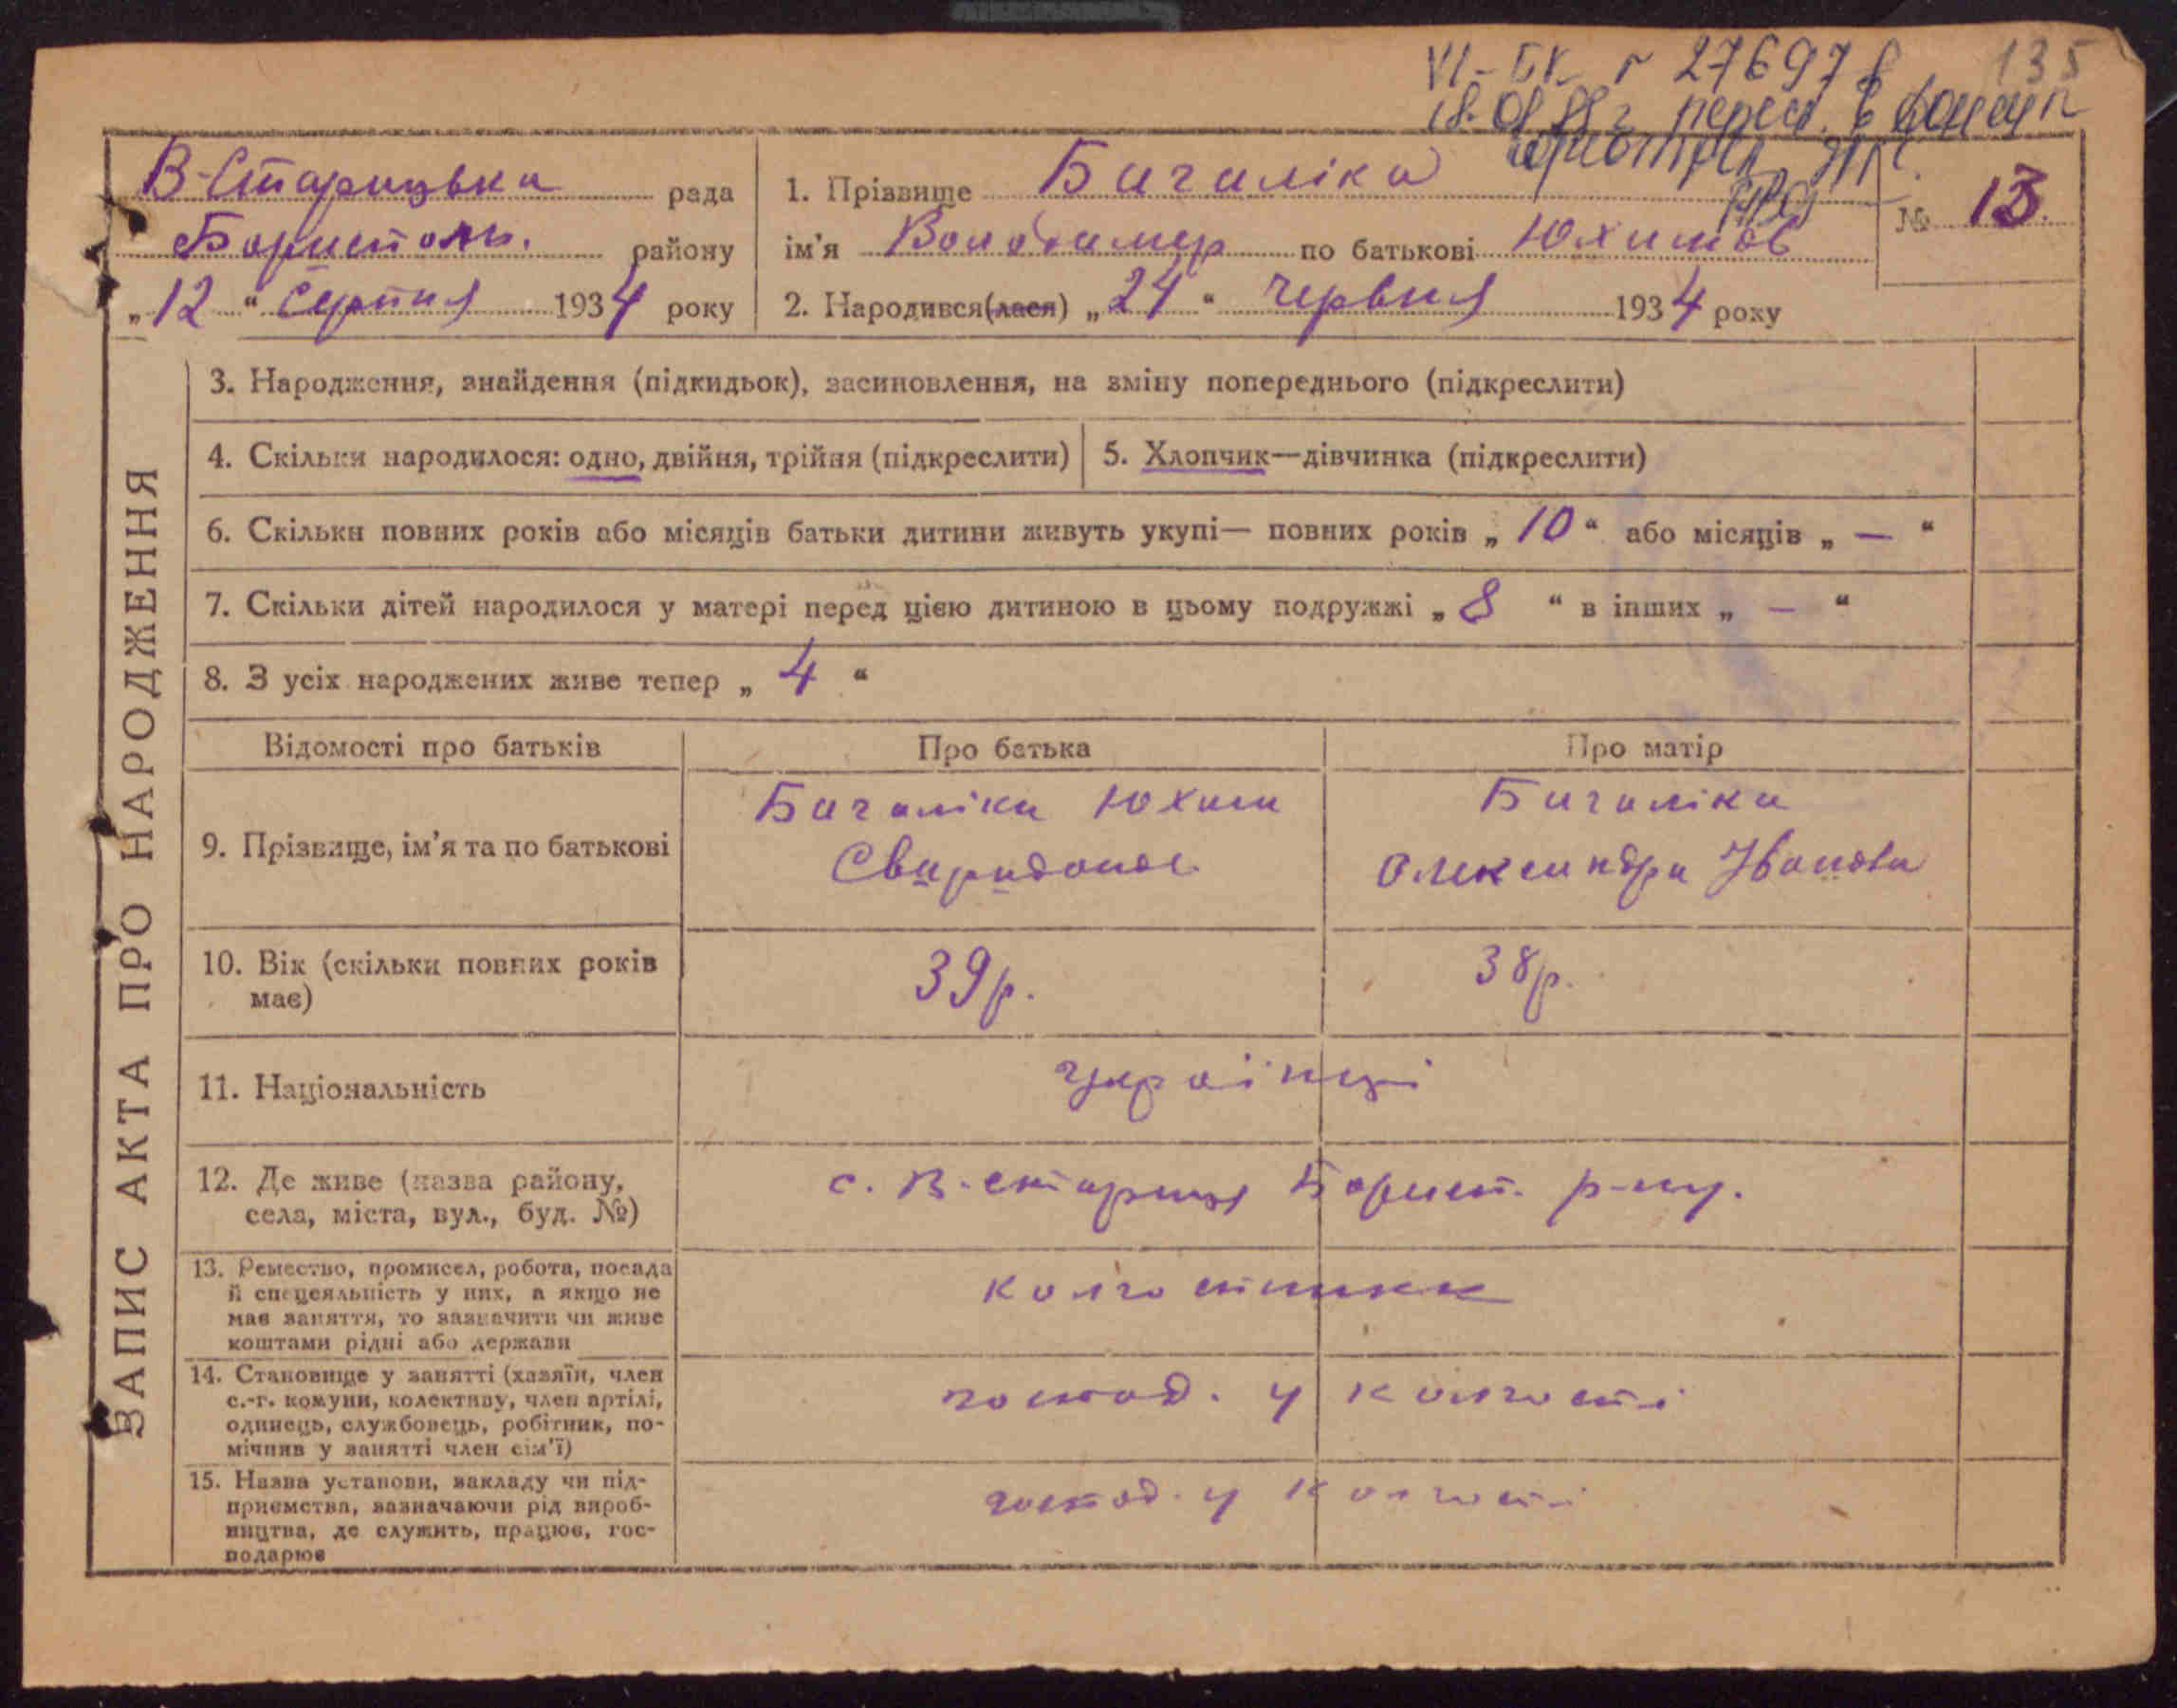 135
VI-БК г 27697 8
18.08.88 г.
В-Старицька рада
Бориспольс. району
„12“ Серпня 1934 року
1. Прізвище Багаліка
ім'я Володимир по батькові Юхимов
2. Народився(лася) „24“ червня 1934 року
№ 13.
ЗАПИС АКТА ПРО НАРОДЖЕННЯ
3. Народження, знайдення (підкидьок), засиновлення, на зміну попереднього (підкреслити)
4. Скільки народилося: одно, двійня, трійня (підкреслити)
5. Хлопчик—дівчинка (підкреслити)
6. Скільки повних років або місяців батьки дитини живуть укупі— повних років „ 10 “ або місяців „ — “
7. Скільки дітей народилося у матері перед цією дитиною в цьому подружжі „ 8 “ в інших „ — “
8. З усіх народжених живе тепер „ 4 “
Відомості про батьків
Про батька
Про матір
9. Прізвище, ім'я та по батькові
Багаліка Юхим
Свиридонов
Багаліка
Олександра Іванова
10. Вік (скільки повних років
має)
39р.
38р.
11. Національність
українці
12. Де живе (назва району,
села, міста, вул., буд. №)
с. В-стариця Борисп. р-ну.
13. Ремество, промисел, робота, посада
й спецеяльність у них, а якщо не
має заняття, то зазначити чи живе
коштами рідні або держави
колгоспники
14. Становище у занятті (хазяїн, член
с.-г. комуни, колективу, член артілі,
одинець, службовець, робітник, по-
мічник у занятті член сім'ї)
господ. у колгоспі
15. Назва установи, закладу чи під-
приємства, зазначаючи рід вироб-
ництва, де служить, працює, гос-
подарює
господ. у колгоспі